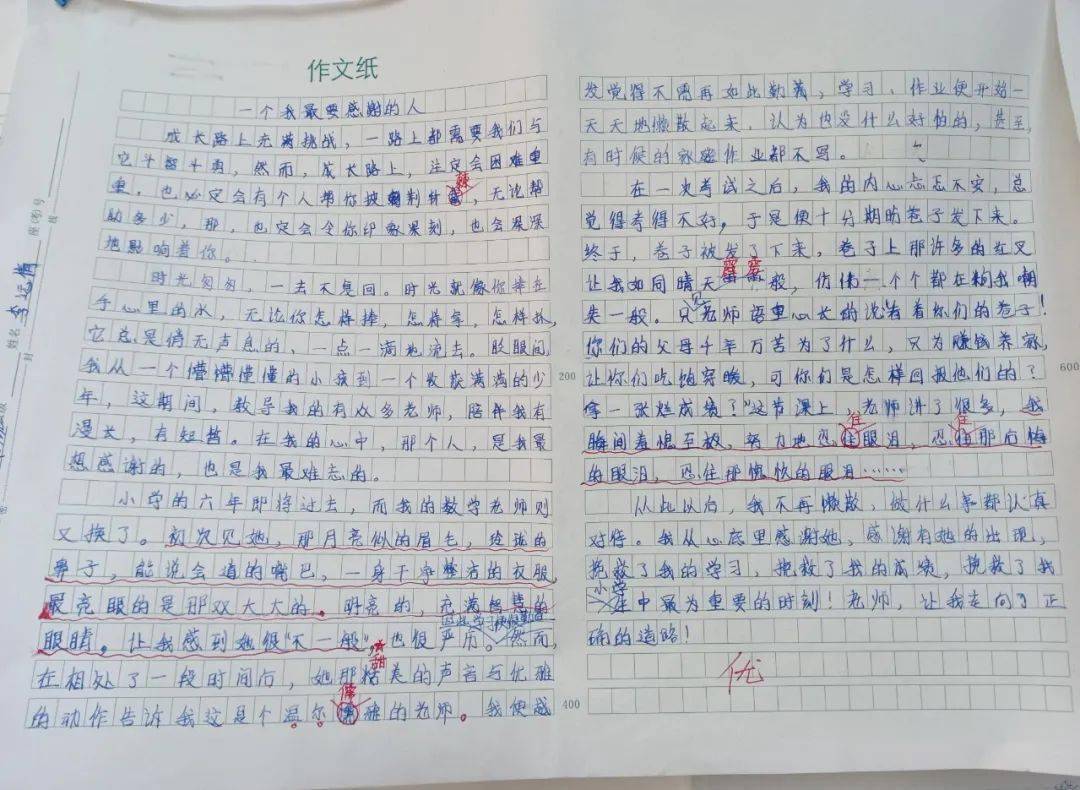 作文纸
一个我最要感谢的人
成长路上充满挑战，一路上都需要我们与
它斗智斗勇，然而，成长路上，注定会困难重
重，也必定会有个人帮你披荆斩棘，无论帮
助多少，那，也定会令你印象深刻，也会深深
地影响着你。
时光匆匆，一去不复回。时光就像你捧在
手心里的水，无论你怎样捧，怎样
它总是悄无声息的，一点一滴地流去。眨眼间
我从一个懵懵懂懂的小孩到一个收获满满的少
年，这期间，教导我的有众多老师，陪伴我有
漫长，有短暂。在我的心中，那个人，是我最
想感谢的，也是我最难忘的。
小学的六年即将过去，而我的数学老师则
又换了。初次见她，那月亮似的眉毛，玲珑的
鼻子，能说会道的嘴巴，一身干净整洁的衣服
最亮眼的是那双大大的。明亮的，充满智慧的
眼睛。让我感到她很“不一般”，也很严厉。然而
在相处了一段时间后，她那甜美的声音与优雅
的动作告诉我这是个温尔儒雅的老师。我便感
400
发觉得不需再如此勤奋，学习、作业便开始一
天天地懒散起来，认为也没什么好怕的，甚至
有时候的家庭作业都不写。
在一次考试之后，我的内心忐忑不安，总
觉得考得不好，于是便十分期盼卷子发下来。
终于，卷子被发了下来，卷子上那许多的红叉
让我如同晴天霹雳一般，仿佛一个个都在向我嘲
笑一般。只见老师语重心长的说着你们的卷子！
你们的父母千辛万苦为了什么，只为赚钱养家，
600
让你们吃饱穿暖，可你们是怎样回报他们的？
200
拿一张烂成绩？”这节课上，老师讲了很多，我
瞬间羞愧至极，努力地忍住眼泪，忍住那后悔
的眼泪，忍住那愧疚的眼泪……
从此以后，我不再懒散，做什么事都认真
对待。我从心底里感谢她，感谢有她的出现，
挽救了我的学习，挽救了我的成绩，挽救了我
小学生中最为重要的时刻！老师，让我走向了正
确的道路！
优
姓名